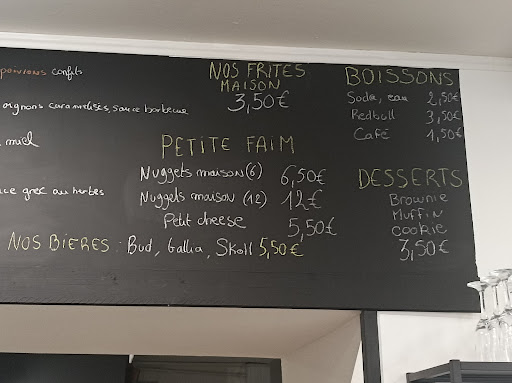 poivrons confits
oignons caramélisés, sauce barbecue
miel
grec au herbes
NOS FRITES
MAISON
3,50€
PETITE FAIM
Nuggets maison (6) 6,50€
Nuggets maison (12) 12€
Petit cheese 5,50€
NOS BIERES : Bud, Gallia, Skoll 5,50€
BOISSONS
Soda, eau 2,50€
Redbull 3,50€
Café 1,50€
DESSERTS
Brownie
Muffin
Cookie
3,50€